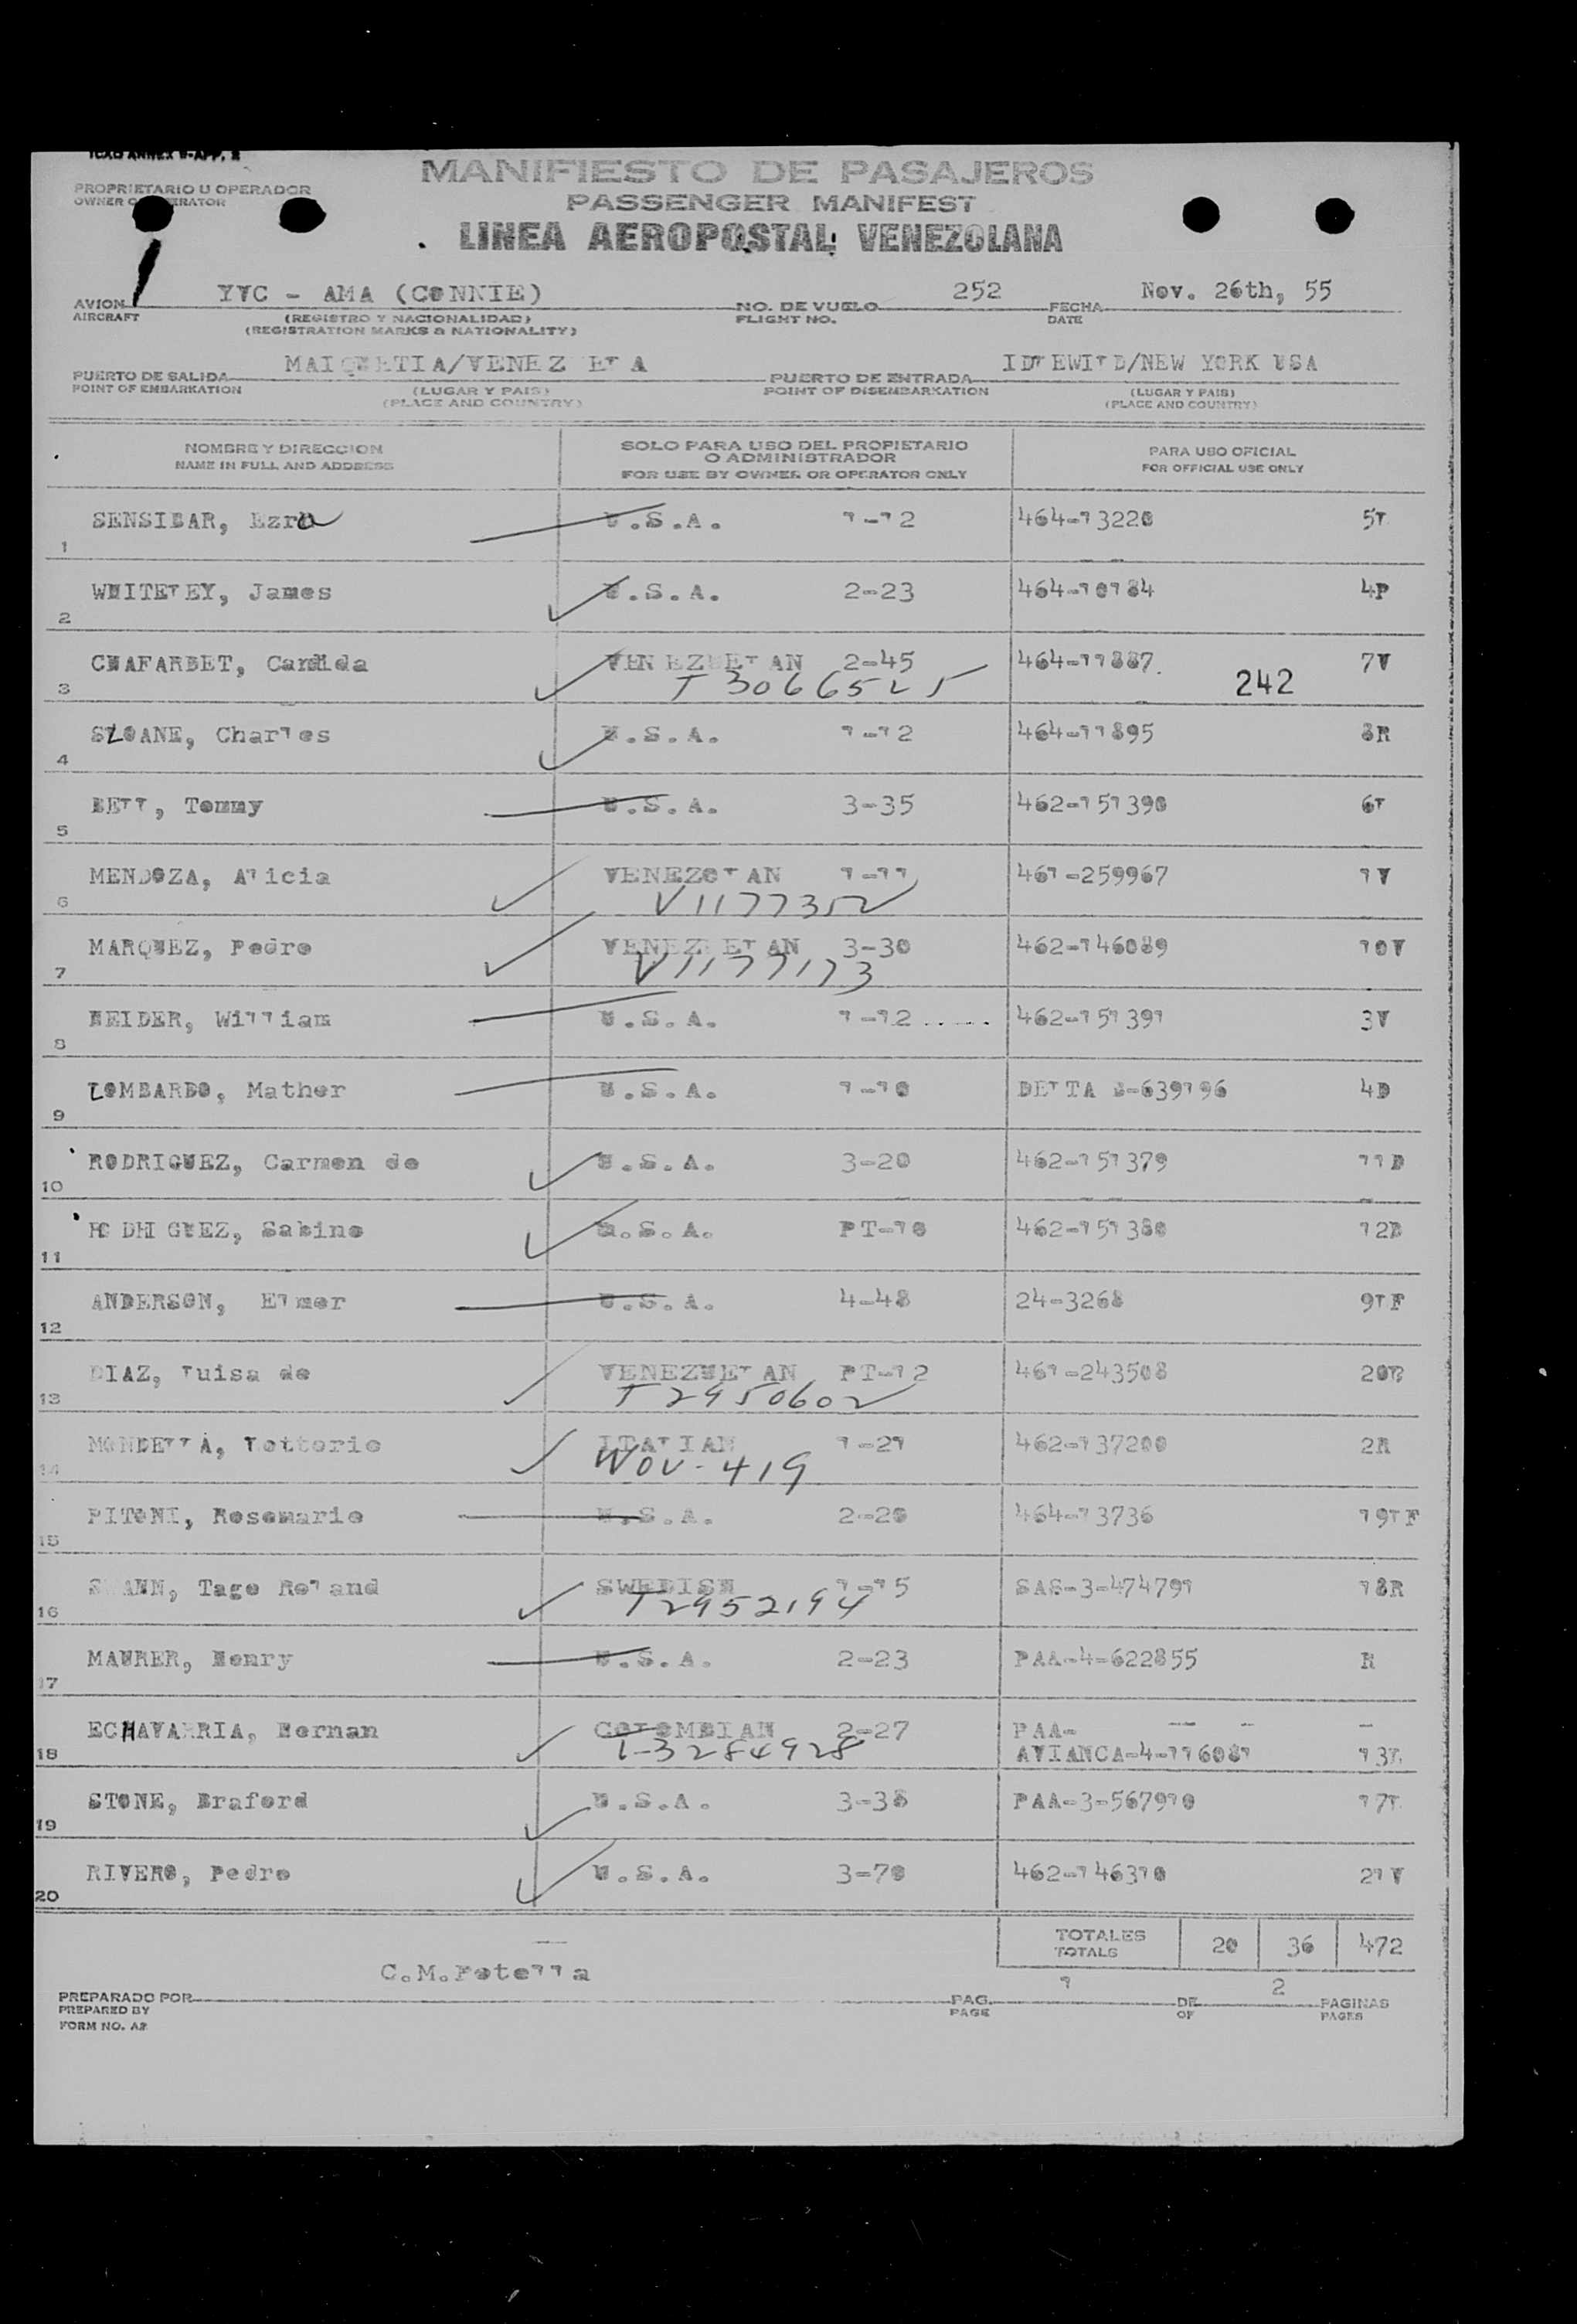 ICAO ANNEX 9-APP. 2
MANIFIESTO DE PASAJEROS
PROPRIETARIO U OPERADOR
OWNER O ERATOR
PASSENGER MANIFEST
LINEA AEROPOSTAL VENEZOLANA
AVION YVC - AMA (CONNIE) NO. DE VUELO 252 FECHA Nov. 26th, 55
AIRCRAFT (REGISTRO Y NACIONALIDAD) FLIGHT NO. DATE
(REGISTRATION MARKS & NATIONALITY)
PUERTO DE SALIDA MAIQUETIA/VENEZUELA PUERTO DE ENTRADA IDLEWILD/NEW YORK USA
POINT OF EMBARKATION (LUGAR Y PAIS) POINT OF DISEMBARKATION (LUGAR Y PAIS)
(PLACE AND COUNTRY) (PLACE AND COUNTRY)
NOMBRE Y DIRECCION SOLO PARA USO DEL PROPIETARIO O ADMINISTRADOR PARA USO OFICIAL
NAME IN FULL AND ADDRESS FOR USE BY OWNER OR OPERATOR ONLY FOR OFFICIAL USE ONLY
1 SENSIBAR, Ezra U.S.A. 1-12 464-13220 5L
2 WHITELEY, James U.S.A. 2-23 464-10184 4P
3 CHAFARDET, Candida VENEZUELAN 2-45 464-11887 7V
T 3066525 242
4 SLOANE, Charles U.S.A. 1-12 464-11895 8R
5 BELL, Tommy U.S.A. 3-35 462-151390 6L
6 MENDOZA, Alicia VENEZOLAN 1-11 461-259967 1V
V1177352
7 MARQUEZ, Pedro VENEZUELAN 3-30 462-146089 10V
V1177173
8 HEIDER, William U.S.A. 1-12 ..... 462-151391 3V
9 LOMBARDO, Mather U.S.A. 1-10 DELTA B-639196 4D
10 RODRIGUEZ, Carmen de U.S.A. 3-20 462-151379 11D
11 RODRIGUEZ, Sabino U.S.A. PT-10 462-151380 12D
12 ANDERSON, Elmer U.S.A. 4-48 24-3268 9LF
13 DIAZ, Luisa de VENEZUELAN PT-12 461-243508 20R
T 2950602
14 MONDELLA, Vottorio ITALIAN 1-21 462-137200 2R
WOV-419
15 PITONI, Rosemarie U.S.A. 2-20 464-13736 19LF
16 SWANN, Tage Roland SWEDISH 1-15 SAS-3-474791 18R
T2952194
17 MAURER, Henry U.S.A. 2-23 PAA-4-622855 R
18 ECHAVARRIA, Hernan COLOMBIAN 2-27 PAA- -- - -
T-3284928 AVIANCA-4-116081 13L
19 STONE, Braford U.S.A. 3-38 PAA-3-567910 17L
20 RIVERO, Pedro U.S.A. 3-70 462-146310 21V
TOTALES
TOTALS 20 36 472
PREPARADO POR C.M.Potella PAG. 1 DE 2 PAGINAS
PREPARED BY PAGE OF PAGES
FORM NO. A2